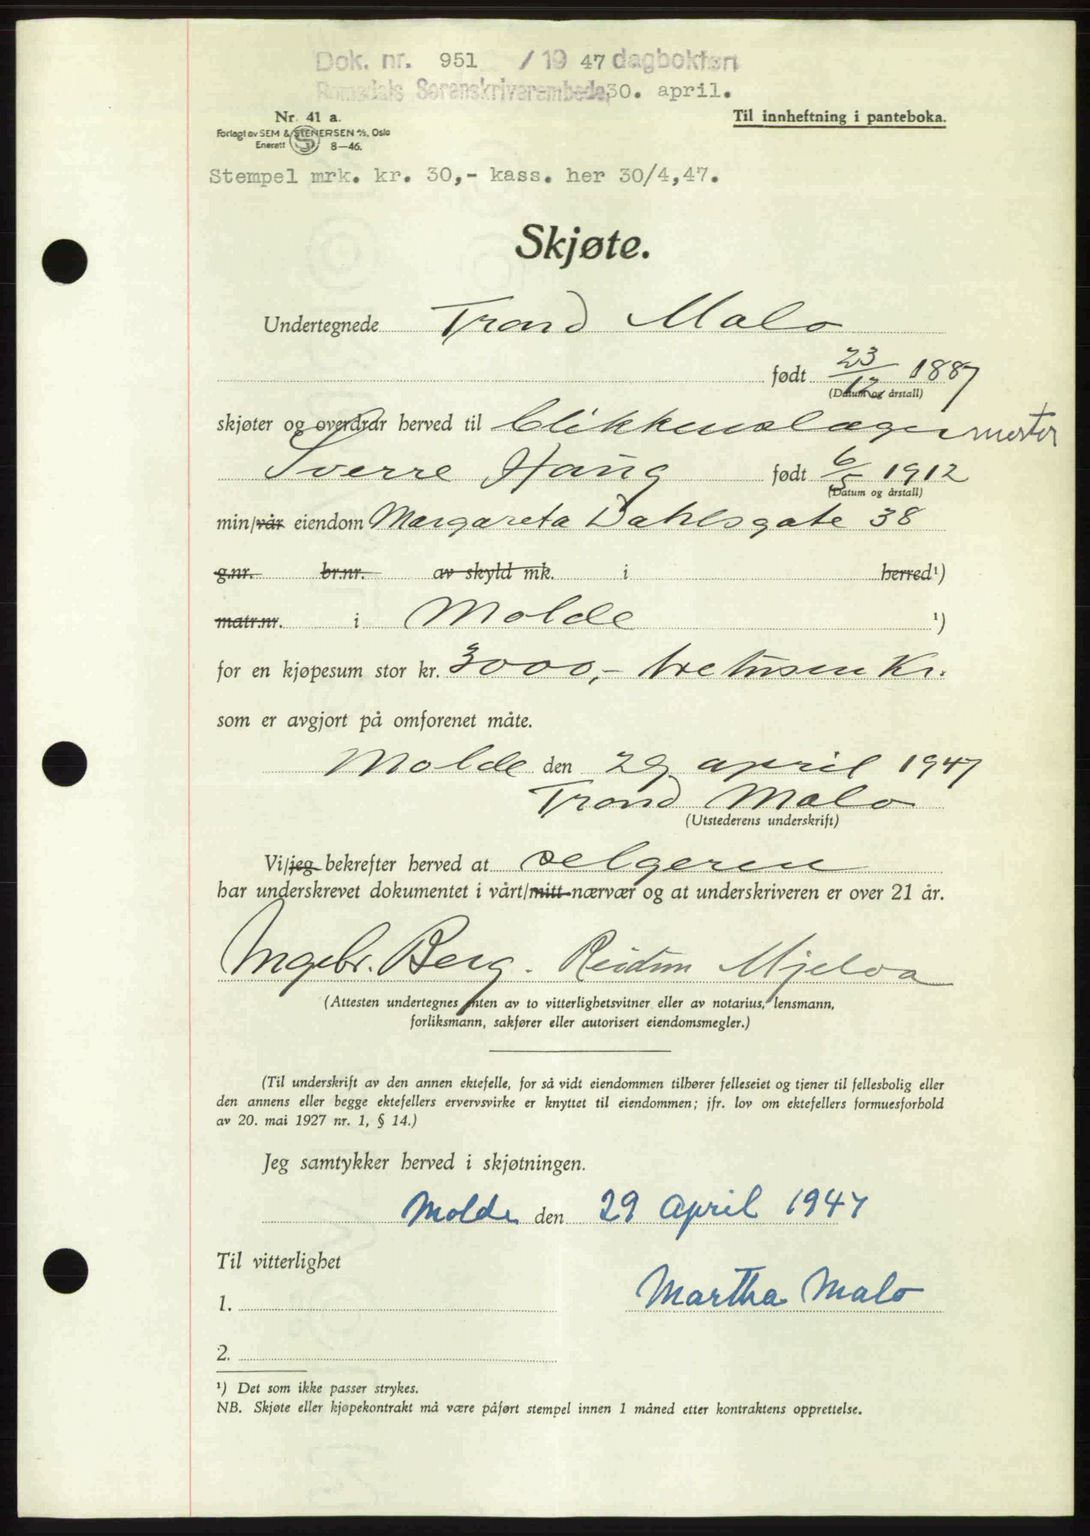 Dok. nr. 951 / 19 47 dagbokført
Romsdals Sorenskriverembede, 30. april.
Nr. 41 a.
Til innheftning i panteboka.
Forlagt av SEM & STENERSEN A/S, Oslo
Enerett 8—46.
Stempel mrk. kr. 30,- kass. her 30/4,47.
Skjøte.
Undertegnede Trond Malo
født 23/12 1887
(Datum og årstall)
skjøter og overdrar herved til blikkenslagermester
Sverre Haug født 6/5 1912
(Datum og årstall)
min/vår eiendom Margareta Dahlsgate 38
g.nr. br.nr. av skyld mk. i herred¹)
matr.nr. i Molde ¹)
for en kjøpesum stor kr. 3000,- tretusen Kr.
som er avgjort på omforenet måte.
Molde den 29 april 1947
Trond Malo
(Utstederens underskrift)
Vi/jeg bekrefter herved at selgeren
har underskrevet dokumentet i vårt/mitt nærvær og at underskriveren er over 21 år.
Ingebr. Berg. Reidun Mjelva
(Attesten undertegnes enten av to vitterlighetsvitner eller av notarius, lensmann,
forliksmann, sakfører eller autorisert eiendomsmegler.)
(Til underskrift av den annen ektefelle, for så vidt eiendommen tilhører felleseiet og tjener til fellesbolig eller
den annens eller begge ektefellers ervervsvirke er knyttet til eiendommen; jfr. lov om ektefellers formuesforhold
av 20. mai 1927 nr. 1, § 14.)
Jeg samtykker herved i skjøtningen.
Molde den 29 april 1947
Til vitterlighet
1.
Martha Malo
2.
¹) Det som ikke passer strykes.
NB. Skjøte eller kjøpekontrakt må være påført stempel innen 1 måned etter kontraktens opprettelse.